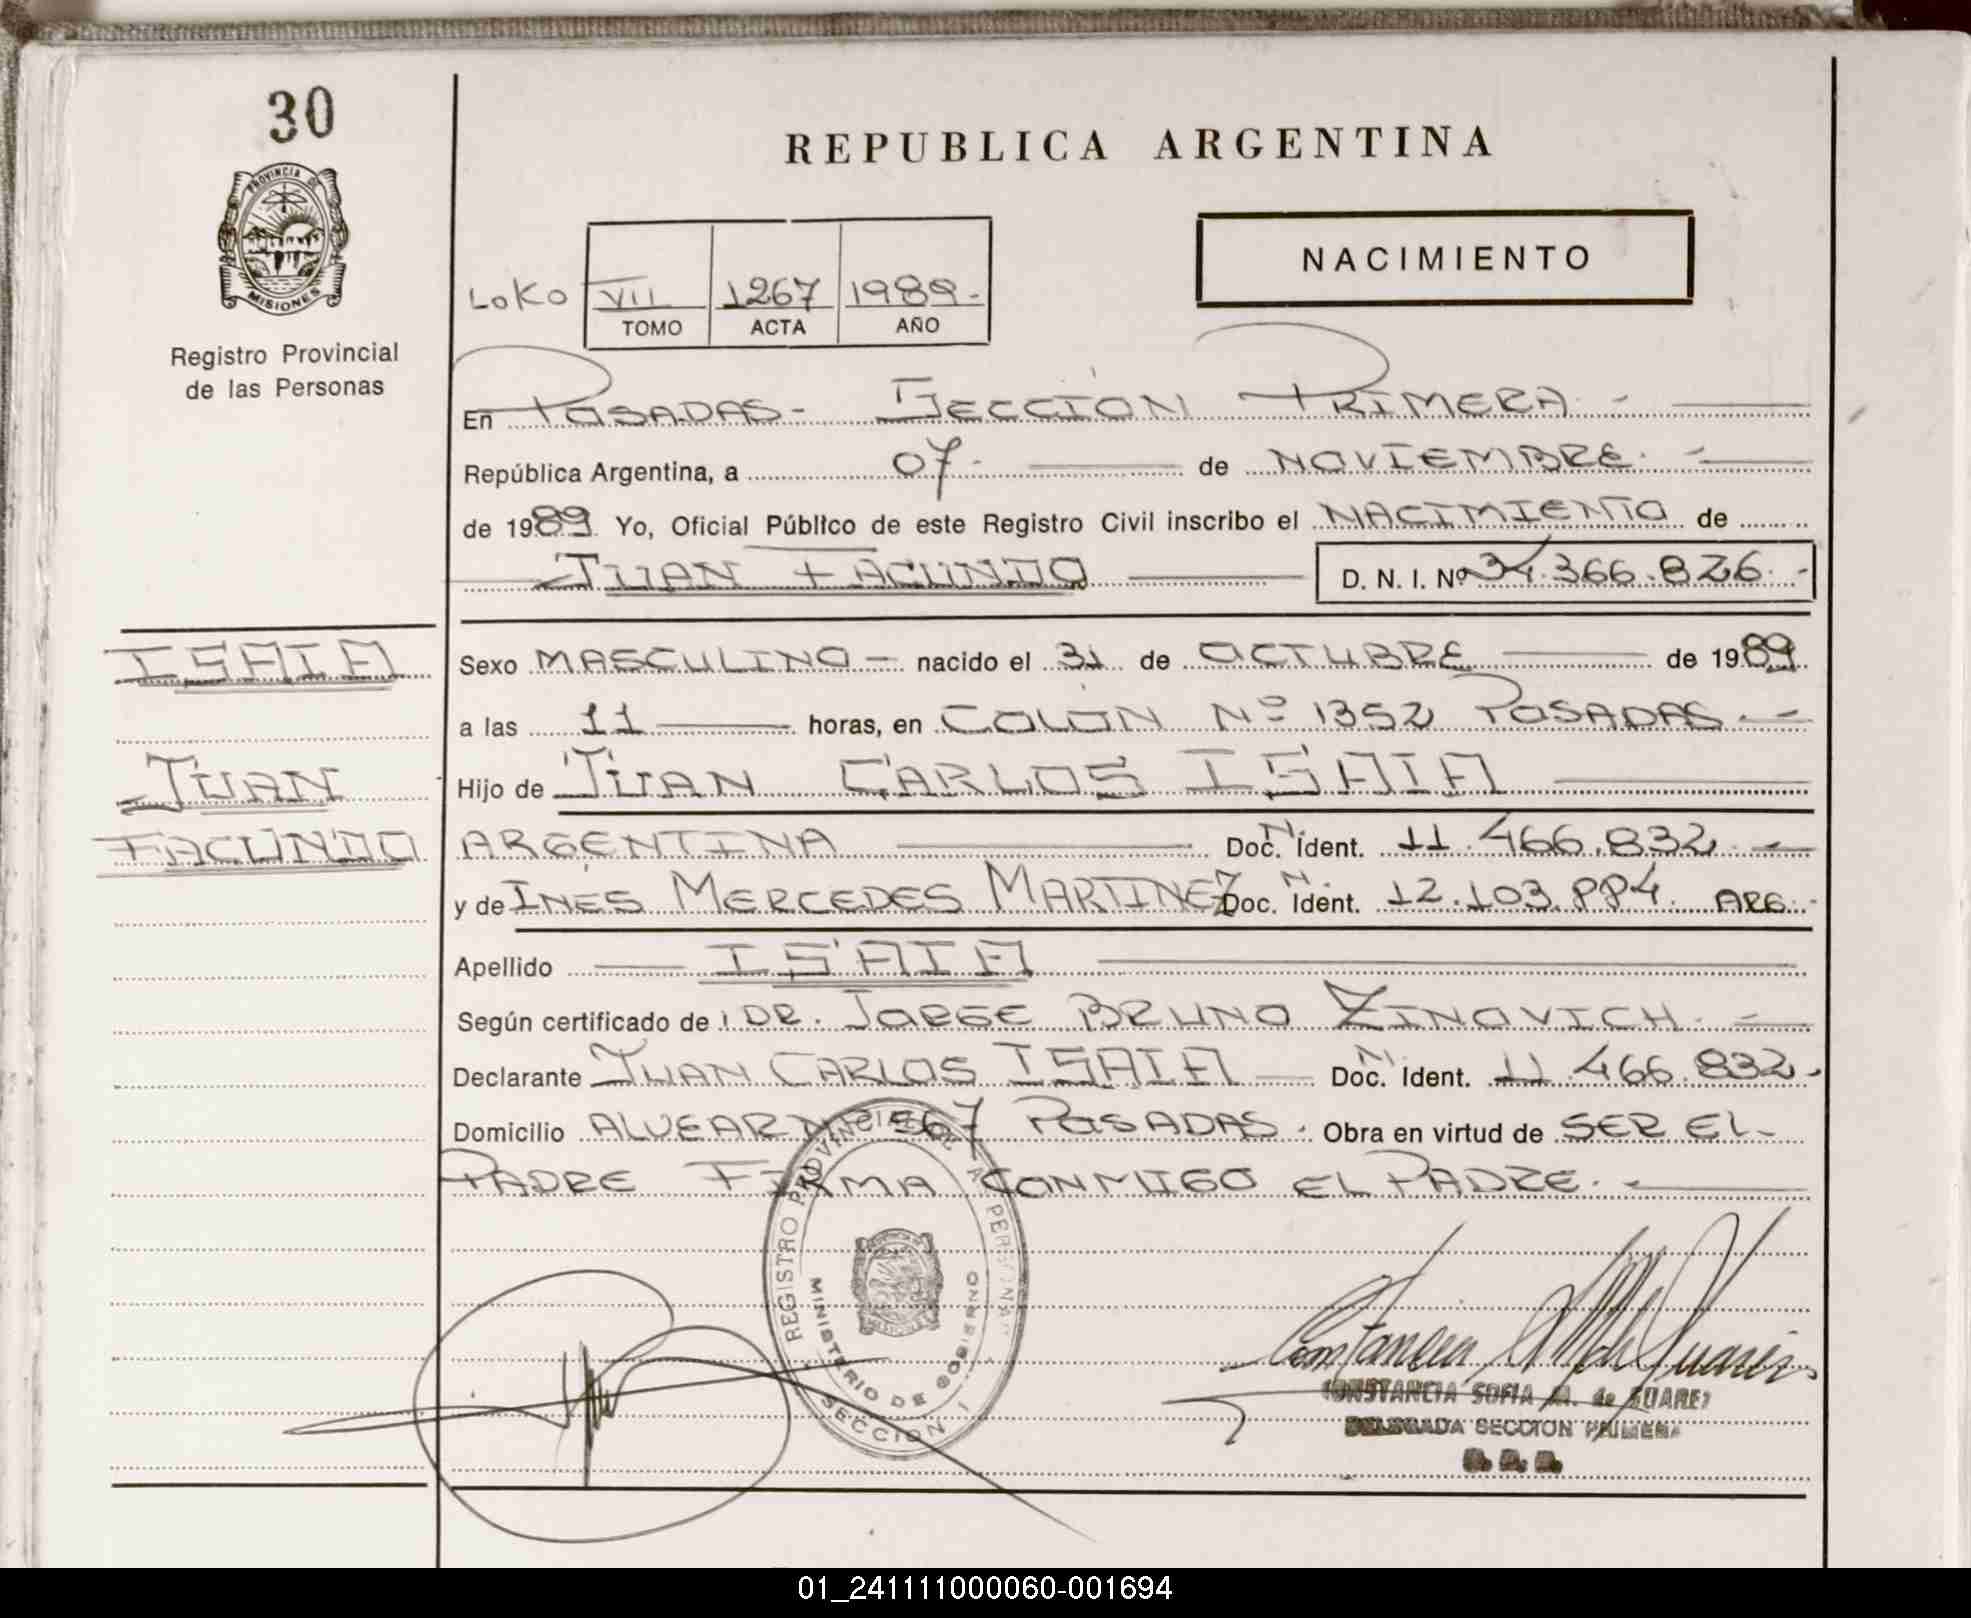 30
PROVINCIA DE
MISIONES
Registro Provincial
de las Personas
REPUBLICA ARGENTINA
NACIMIENTO
LOKO VII 1267 1989.-
TOMO ACTA AÑO
En POSADAS- SECCIÓN PRIMERA.-
República Argentina, a 07- de NOVIEMBRE.-
de 1989 Yo, Oficial Público de este Registro Civil inscribo el NACIMIENTO de
JUAN FACUNDO
D. N. I. Nº 34.366.826.-
ISAIA
JUAN
FACUNDO
Sexo MASCULINO- nacido el 31 de OCTUBRE de 1989
a las 11 horas, en COLÓN Nº 1352 POSADAS.-
Hijo de JUAN CARLOS ISAIA
ARGENTINA Doc. N. Ident. 11.466.832.-
y de INÉS MERCEDES MARTINEZ Doc. N. Ident. 12.103.884. ARG.-
Apellido ISAIA
Según certificado de: DR. JORGE BRUNO ZINOVICH.-
Declarante JUAN CARLOS ISAIA Doc. N. Ident. 11.466.832.
Domicilio ALVEAR Nº 567 POSADAS. Obra en virtud de SER EL
PADRE FIRMA CONMIGO EL PADRE.-
REGISTRO PROVINCIAL DE LAS PERSONAS
MINISTERIO DE GOBIERNO
SECCION 1
CONSTANCIA SOFIA M. de SUAREZ
DELEGADA SECCION PRIMERA
01_241111000060-001694